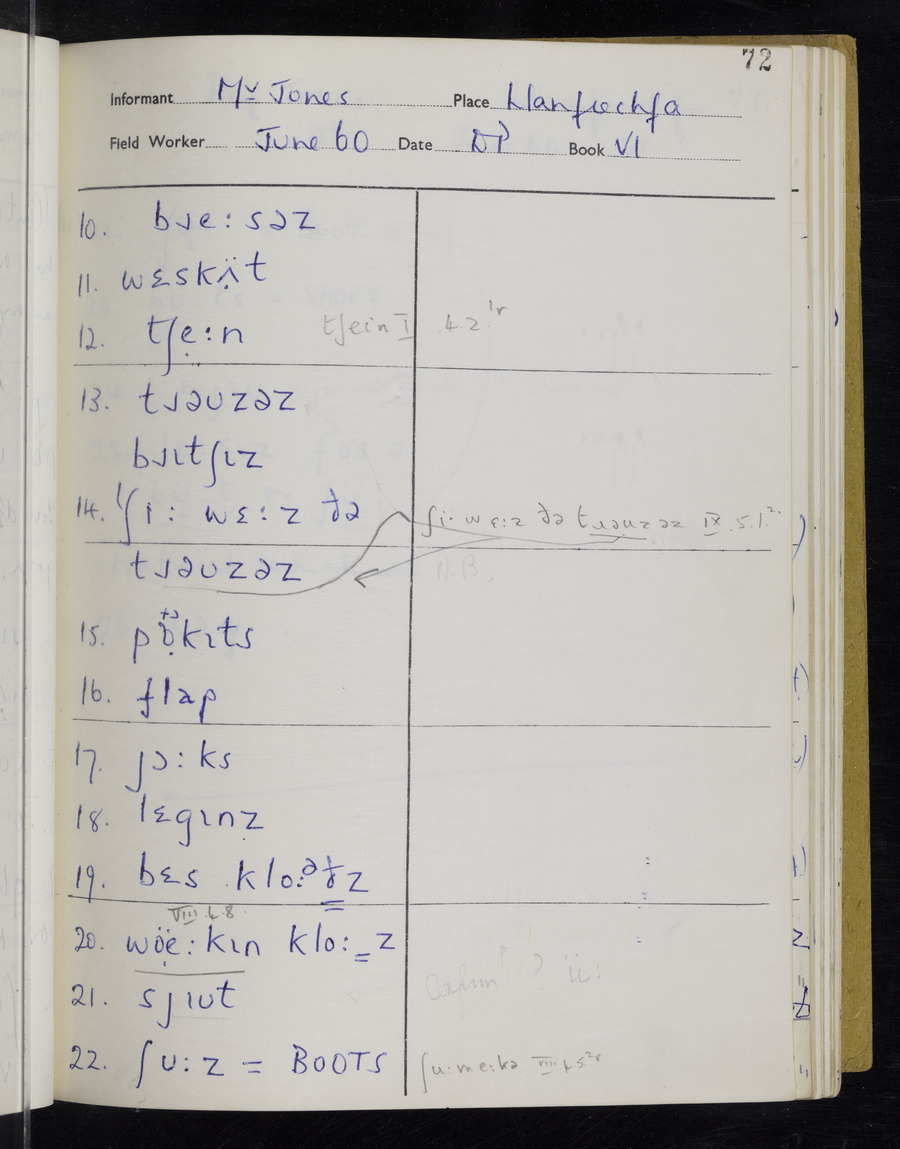 72
Informant Mr Jones Place Llanfrechfa
Field Worker June 60 Date DP Book VI
10. bɹe:səz
11. wɛskʌ̣̈t
12. tʃẹ:n tʃein I 4.2.1r
13. tɹəʊzəz
bɹɪtʃɪz
14. ꞌʃi: wɛ:z ðə ʃi· wɛ:z ðə tɹəʊzəz IX.5.1.2.
tɹəʊzəz N.B.
15. pɒ̣̈kɪts
16. flap
17. jɔ:ks
18. lɛgɪnẓ
19. bɛs klo:ᵊðz
VIII.4.8.
20. wọ̈ë:kɪn klo:_z
21. sjɪʊt
22. ʃu:z = BOOTS ʃu:me:kə VIII.4.5.2r